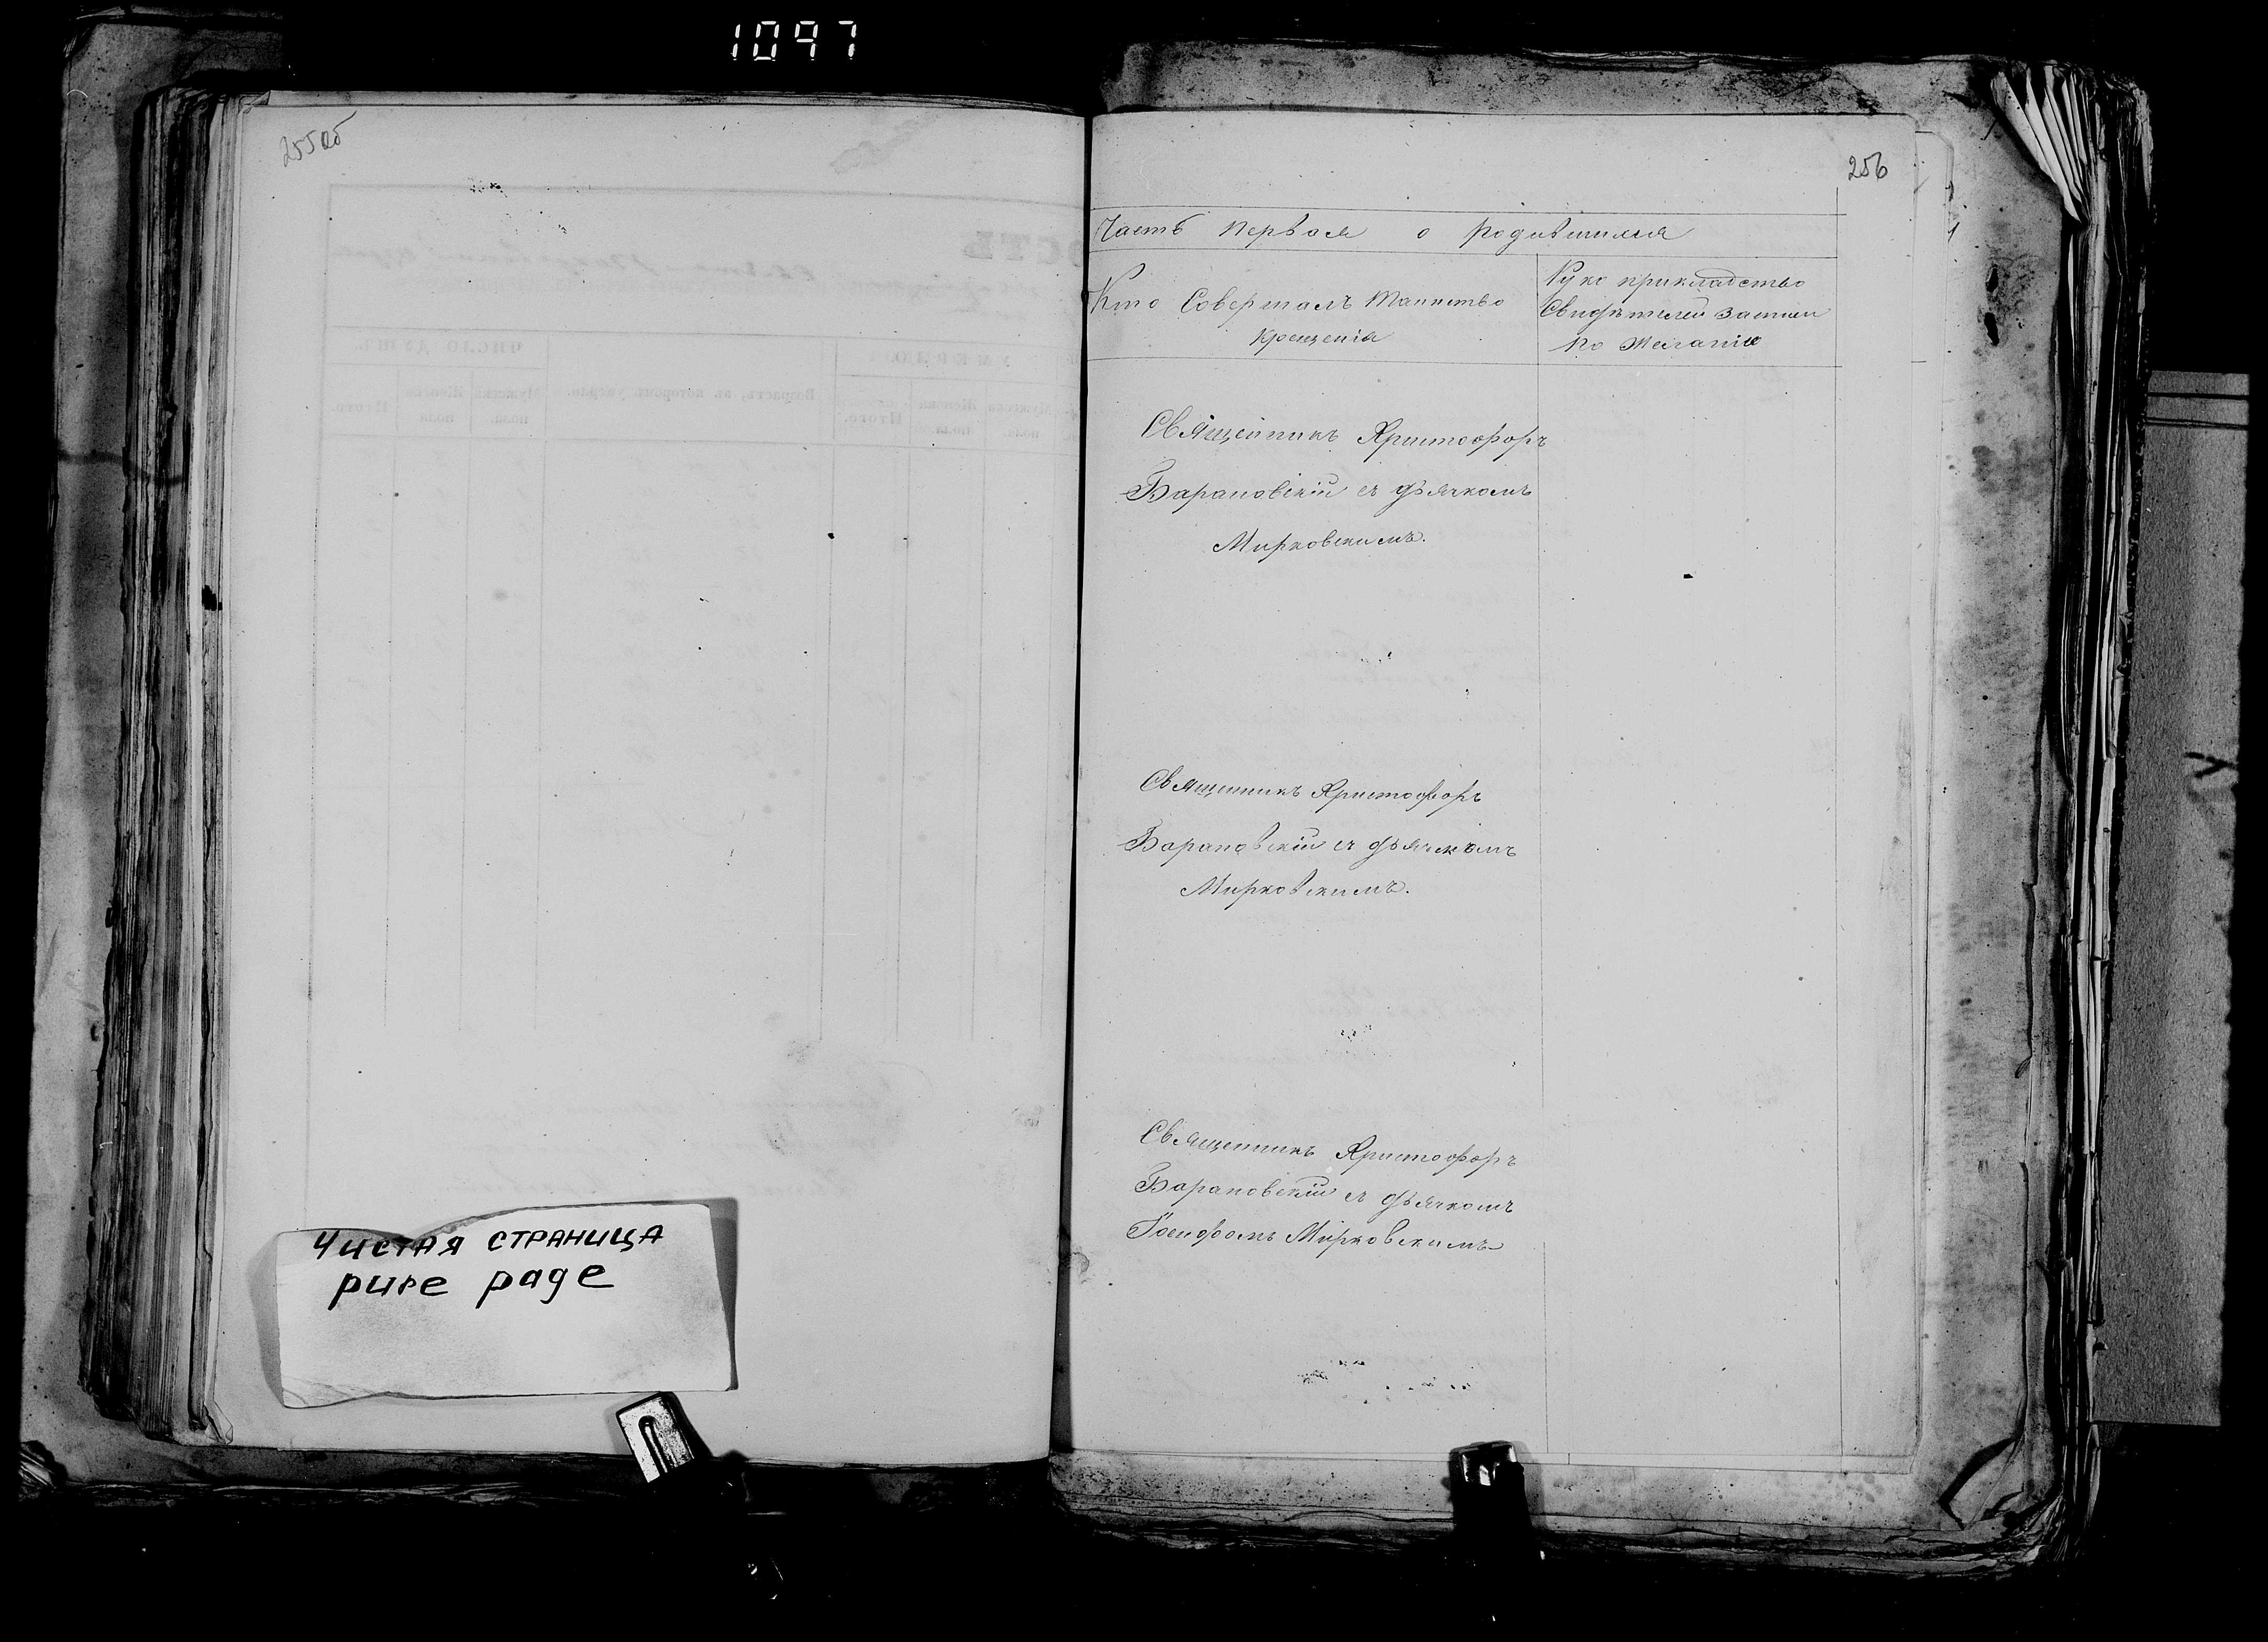 1097
255об
Чистая страница
pure page
256
Часть первая о родившихся
Кто Совершалъ таинство
крещенія
Рукоприкладство
Свидѣтелей записи
по желанію
Священникъ Христофоръ
Барановскій съ дьячкомъ
Мирковскимъ.
Священникъ Христофоръ
Барановскій съ дьячкомъ
Мирковскимъ.
Священникъ Христофоръ
Барановскій съ дьячкомъ
Іосифомъ Мирковскимъ